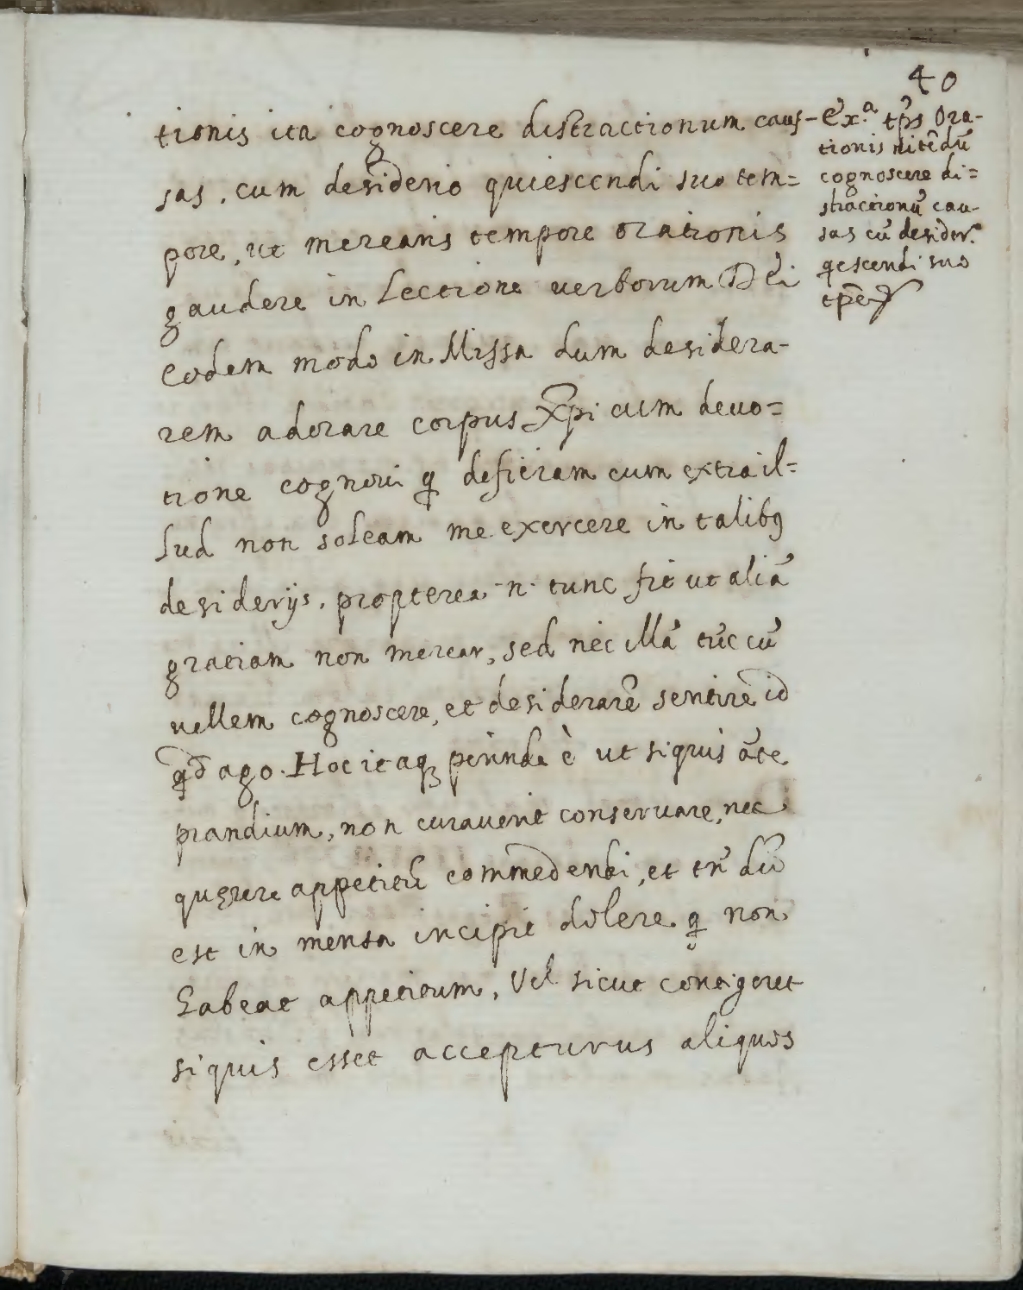 40
tionis ita cognoscere distractionum caus-
sas, cum desiderio quiescendi suo tem=
pore, ut merearis tempore orationis
gaudere in Lectione uerborum Dei
Eodem modo in Missa dum desidera-
rem adorare corpus Xp̃i cum deuo=
tione cognoui q̃ deficiam cum extra il=
lud non soleam me exercere in talibq
desiderijs, propterea n. tunc fit ut aliã
gratiam non merear, sed nec illã tũc cũ
uellem cognoscere, et desiderarẽ sentire id
qd̃ ago. Hoc itaqꝫ perinde è ut siquis ãte
prandium, non curauerit conseruare, nec
quęrere appetitũ commẽdendi, et tñ dũ
est in mensa incipit dolere q̃ non
habeat appetitum, Vel sicut contigeret
siquis esset accepturus aliquos
Ex.ª tp̃s Ora-
tionis nitẽdũ
cognoscere di=
stractionũ cau-
sas cũ desider.º
qescendi suo
tp̃e